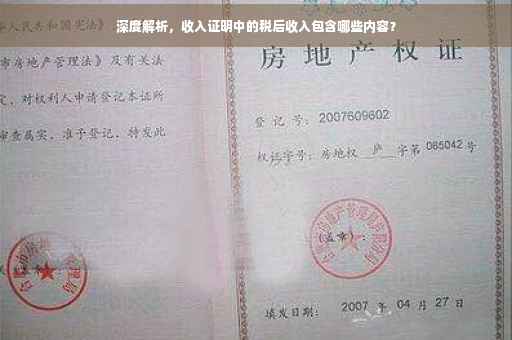 深度解析，收入证明中的税后收入包含哪些内容？
人民共和国宪法》
市房地产管理法》及有关法
定，对权利人申请登记本证所
审查属实，准予登记，特发此
房地产权证
登记号：2007609602
权证字号：房地权 庐 字第 065042 号
(盖章)：
填发日期：2007 年 04 月 27 日